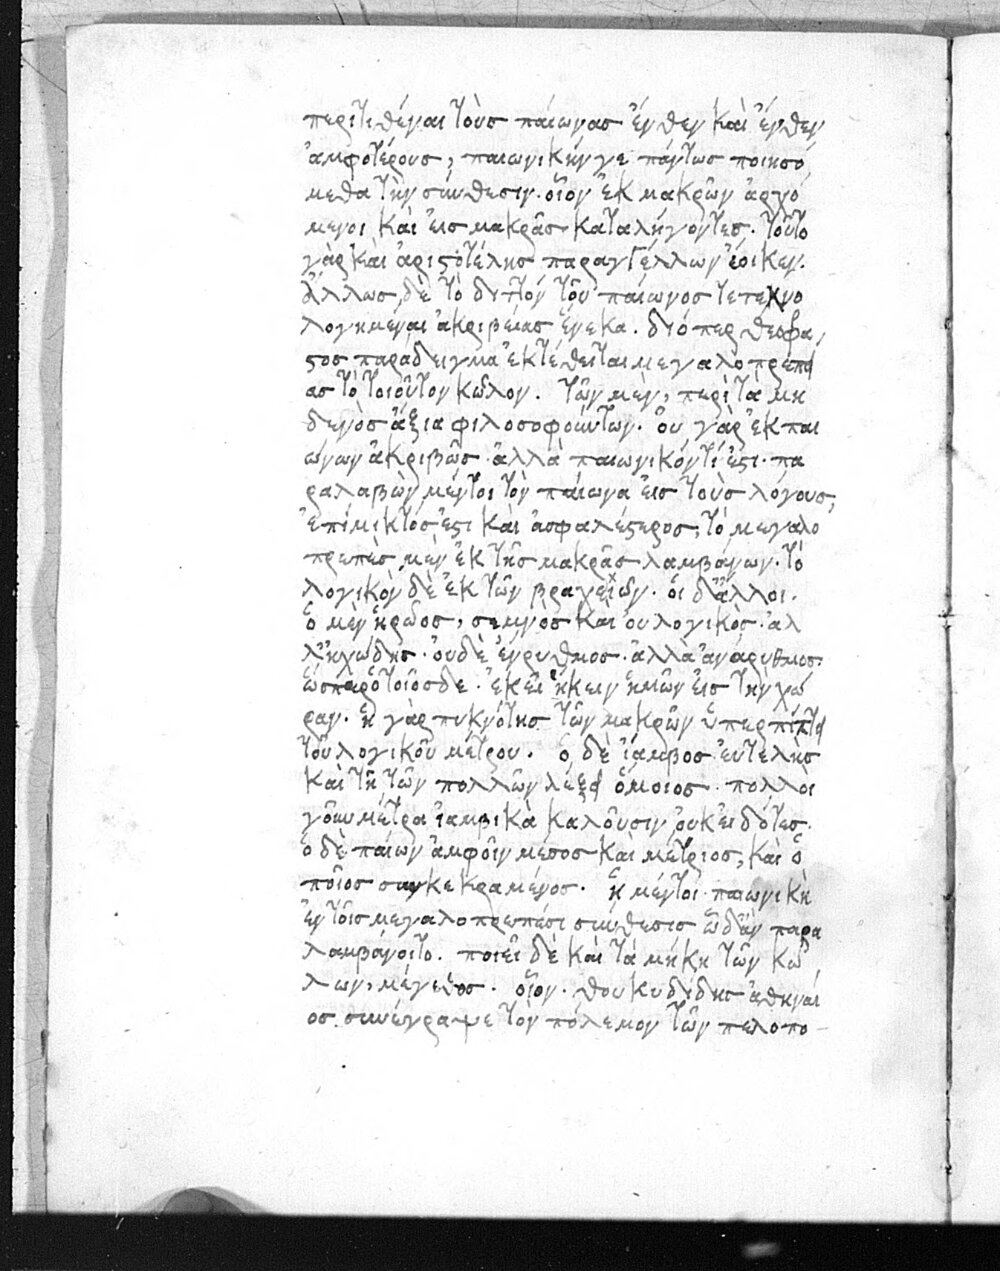 περιτιθέναι τοὺς παίωνας ἔνθεν καὶ ἔνθεν
ἀμφοτέρους, παιωνικήν γε πάντως ποιησό
μεθα τὴν σύνθεσιν· οἷον ἐκ μακρῶν ἀρχό
μενοι καὶ εἰς μακρᾶς καταλήγοντες. τοῦτο
γὰρ καὶ ἀριστοτέλης παραγγέλλων ἔοικεν.
ἄλλως δὲ τὸ διττὸν τοῦ παίωνος τετεχνο
λογημέναι ἀκριβείας ἕνεκα. διόπερ θεόφρα
στος παράδειγμα ἐκτέθειται μεγαλοπρεπεί
ας τὸ τοιοῦτον κῶλον. τῶν μὲν, περὶ τὰ μη
δενὸς ἄξια φιλοσοφούντων. οὐ γὰρ ἐκ παι
ώνων ἀκριβῶς· ἀλλὰ παιωνικόν τί ἐστι· πα
ραλαβὼν μέντοι τὸν παίωνα εἰς τοὺς λόγους,
ἐπίμικτός ἐστι καὶ ἀσφαλέστερος, τὸ μεγαλο
πρεπὲς μὲν ἐκ τῆς μακρᾶς λαμβάνων· τὸ
λογικὸν δὲ ἐκ τῶν βραχειῶν. οἱ δ' ἄλλοι.
ὁ μὲν ἡρῶος, σεμνὸς καὶ οὐ λογικὸς· ἀλ
λ' ἠχώδης· οὐδὲ ἔνρυθμος· ἀλλὰ ἀνάρυθμος.
ὥσπερ ὁ τοιόσδε· ἐκεῖ ἥκειν ἡμῶν εἰς τὴν χώ
ραν. ἡ γὰρ πυκνότης τῶν μακρῶν ὑπερπίπτει
τοῦ λογικοῦ μέτρου. ὁ δὲ ἴαμβος εὐτελὴς
καὶ τῇ τῶν πολλῶν λέξει ὅμοιος. πολλοὶ
γοῦν μέτρα ἰαμβικὰ καλοῦσιν οὐκ εἰδότες.
ὁ δὲ παίων ἀμφοῖν μέσος καὶ μέτριος, καὶ ὁ
ποῖος συγκεκραμένος. ἡ μέντοι παιωνικὴ
ἐν τοῖς μεγαλοπρεπέσι σύνθεσις ὧδ' ἂν παρα
λαμβάνοιτο. ποιεῖ δὲ καὶ τὰ μήκη τῶν κώ
λων, μέγεθος. οἷον. θουκυδίδης ἀθηναῖ
ος συνέγραψε τὸν πόλεμον τῶν πελοπο-